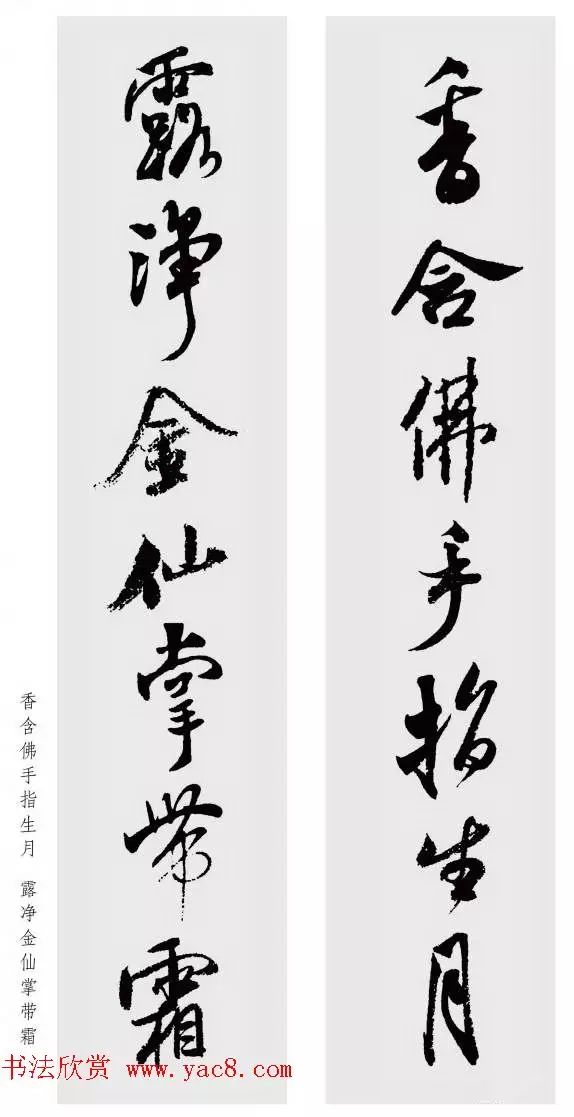 香含佛手指生月
露淨金仙掌帶霜
香含佛手指生月 露净金仙掌带霜
书法欣赏 www.yac8.com